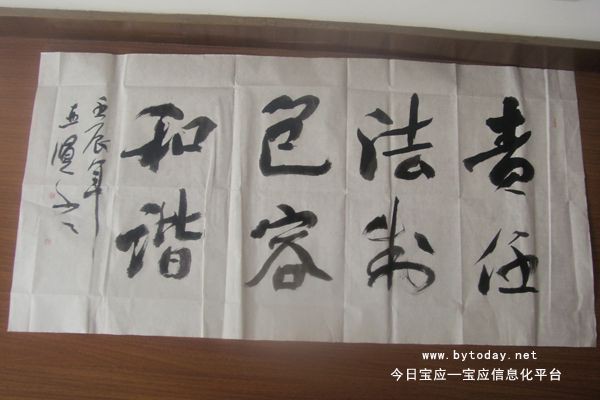 责任
法制
包容
和谐
壬辰年
www.bytoday.net
今日宝应—宝应信息化平台